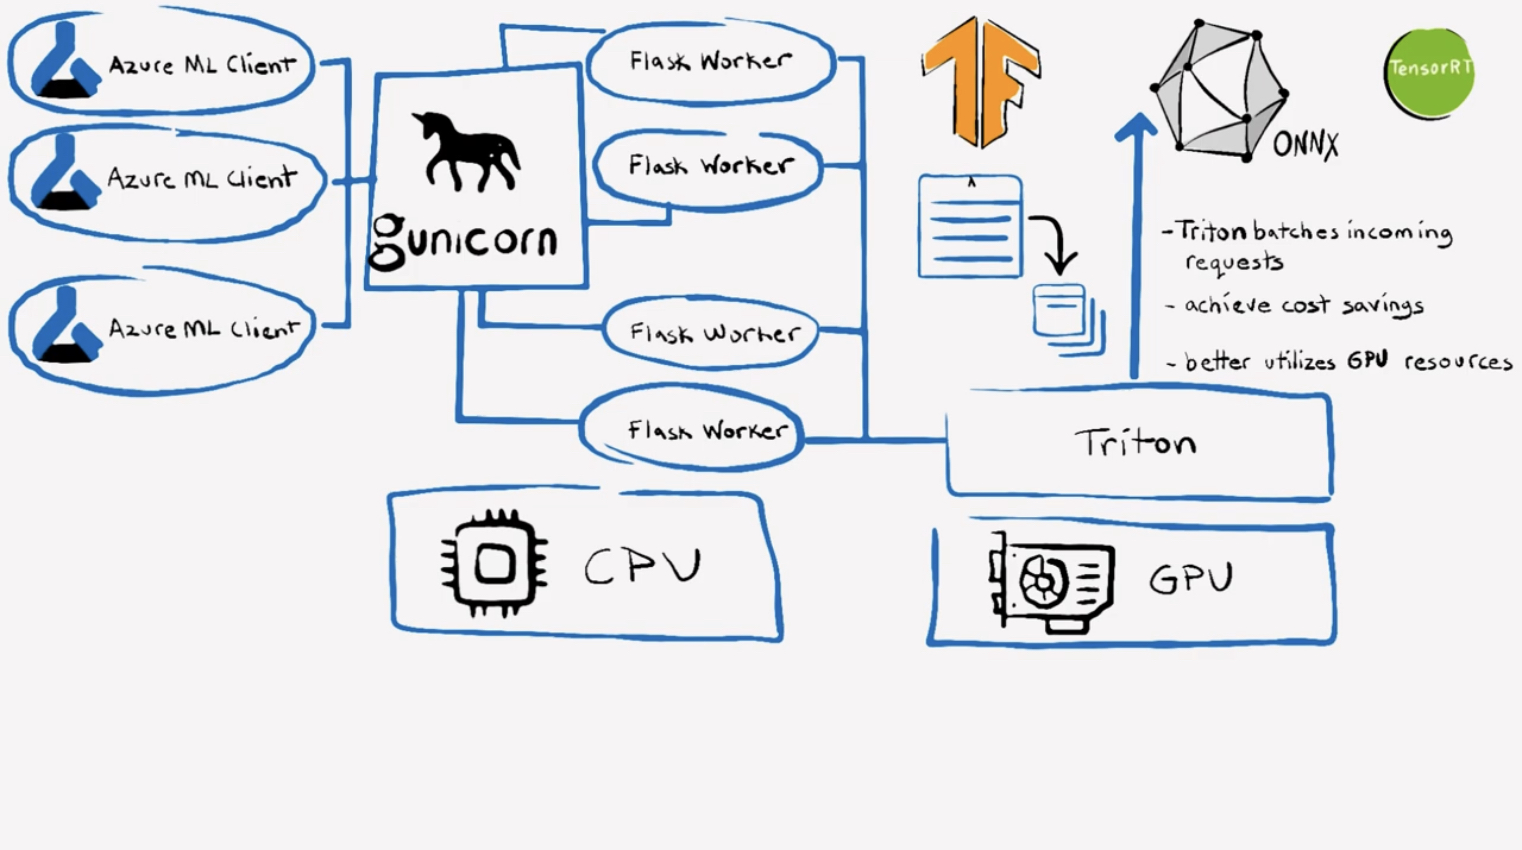 Azure ML Client
Azure ML Client
Azure ML Client
gunicorn
Flask Worker
Flask Worker
Flask Worker
Flask Worker
CPU
TensorRT
ONNX
-Triton batches incoming
requests
- achieve cost savings
- better utilizes GPU resources
Triton
GPU